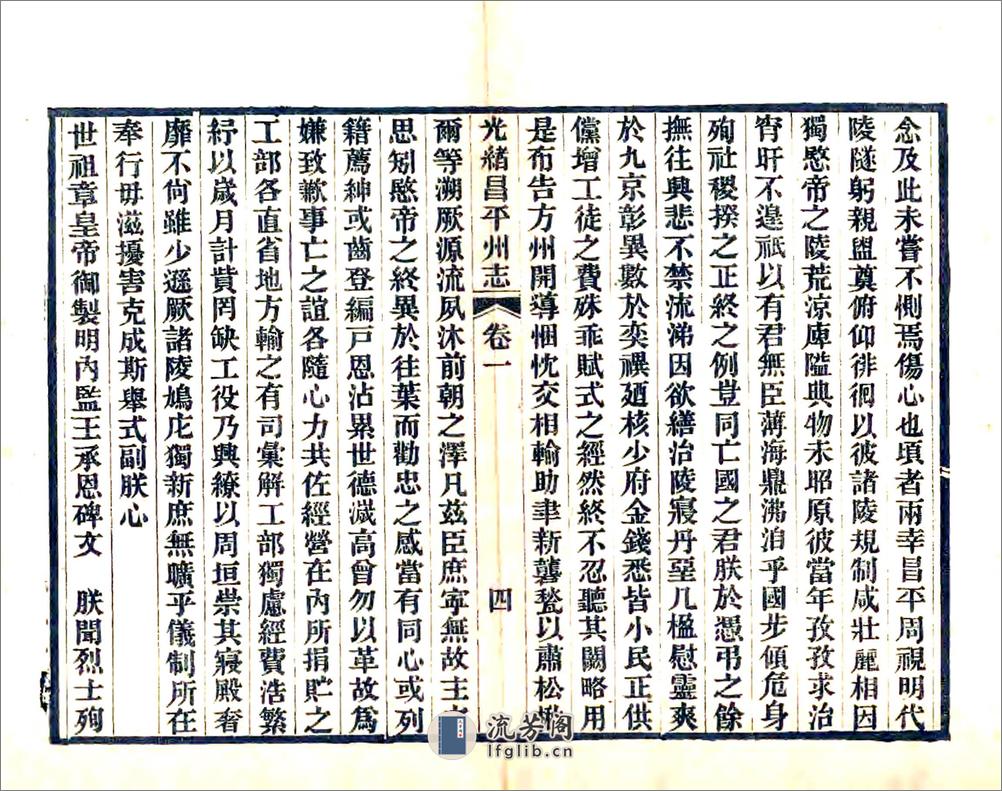 念及此未嘗不惻焉傷心也頃者兩幸昌平周視明代
陵隧躬親盥奠俯仰徘徊以彼諸陵規制咸壯麗相因
獨愍帝之陵荒凉庳隘典物未昭原彼當年孜孜求治
宵旰不遑祇以有君無臣薄海鼎沸洎乎國步傾危身
殉社稷揆之正終之例豈同亡國之君朕於憑弔之餘
撫往興悲不禁流涕因欲繕治陵寢丹堊几楹慰靈爽
於九京彰異數於奕禩廼核少府金錢悉皆小民正供
儻增工徒之費殊乖賦式之經然終不忍聽其闕略用
是布告方州開導悃忱交相輸助聿新礱甃以肅松
光緒昌平州志 卷一 四
爾等溯厥源流夙沐前朝之澤凡茲臣庶寜無故主
思矧愍帝之終異於往葉而勸忠之感當有同心或列
籍薦紳或齒登編戸恩沾累世德減高曾勿以革故爲
嫌致歉事亡之誼各隨心力共佐經營在內所捐貯之
工部各直省地方輸之有司彙解工部獨慮經費浩繁
紓以歲月計貲罔缺工役乃興繚以周垣崇其寢殿奢
靡不尙雖少遜厥諸陵鳩庀獨新庶無曠乎儀制所在
奉行毋滋擾害克成斯舉式副朕心
世祖章皇帝御製明內監王承恩碑文 朕聞烈士殉
流芳閣
lfglib.cn